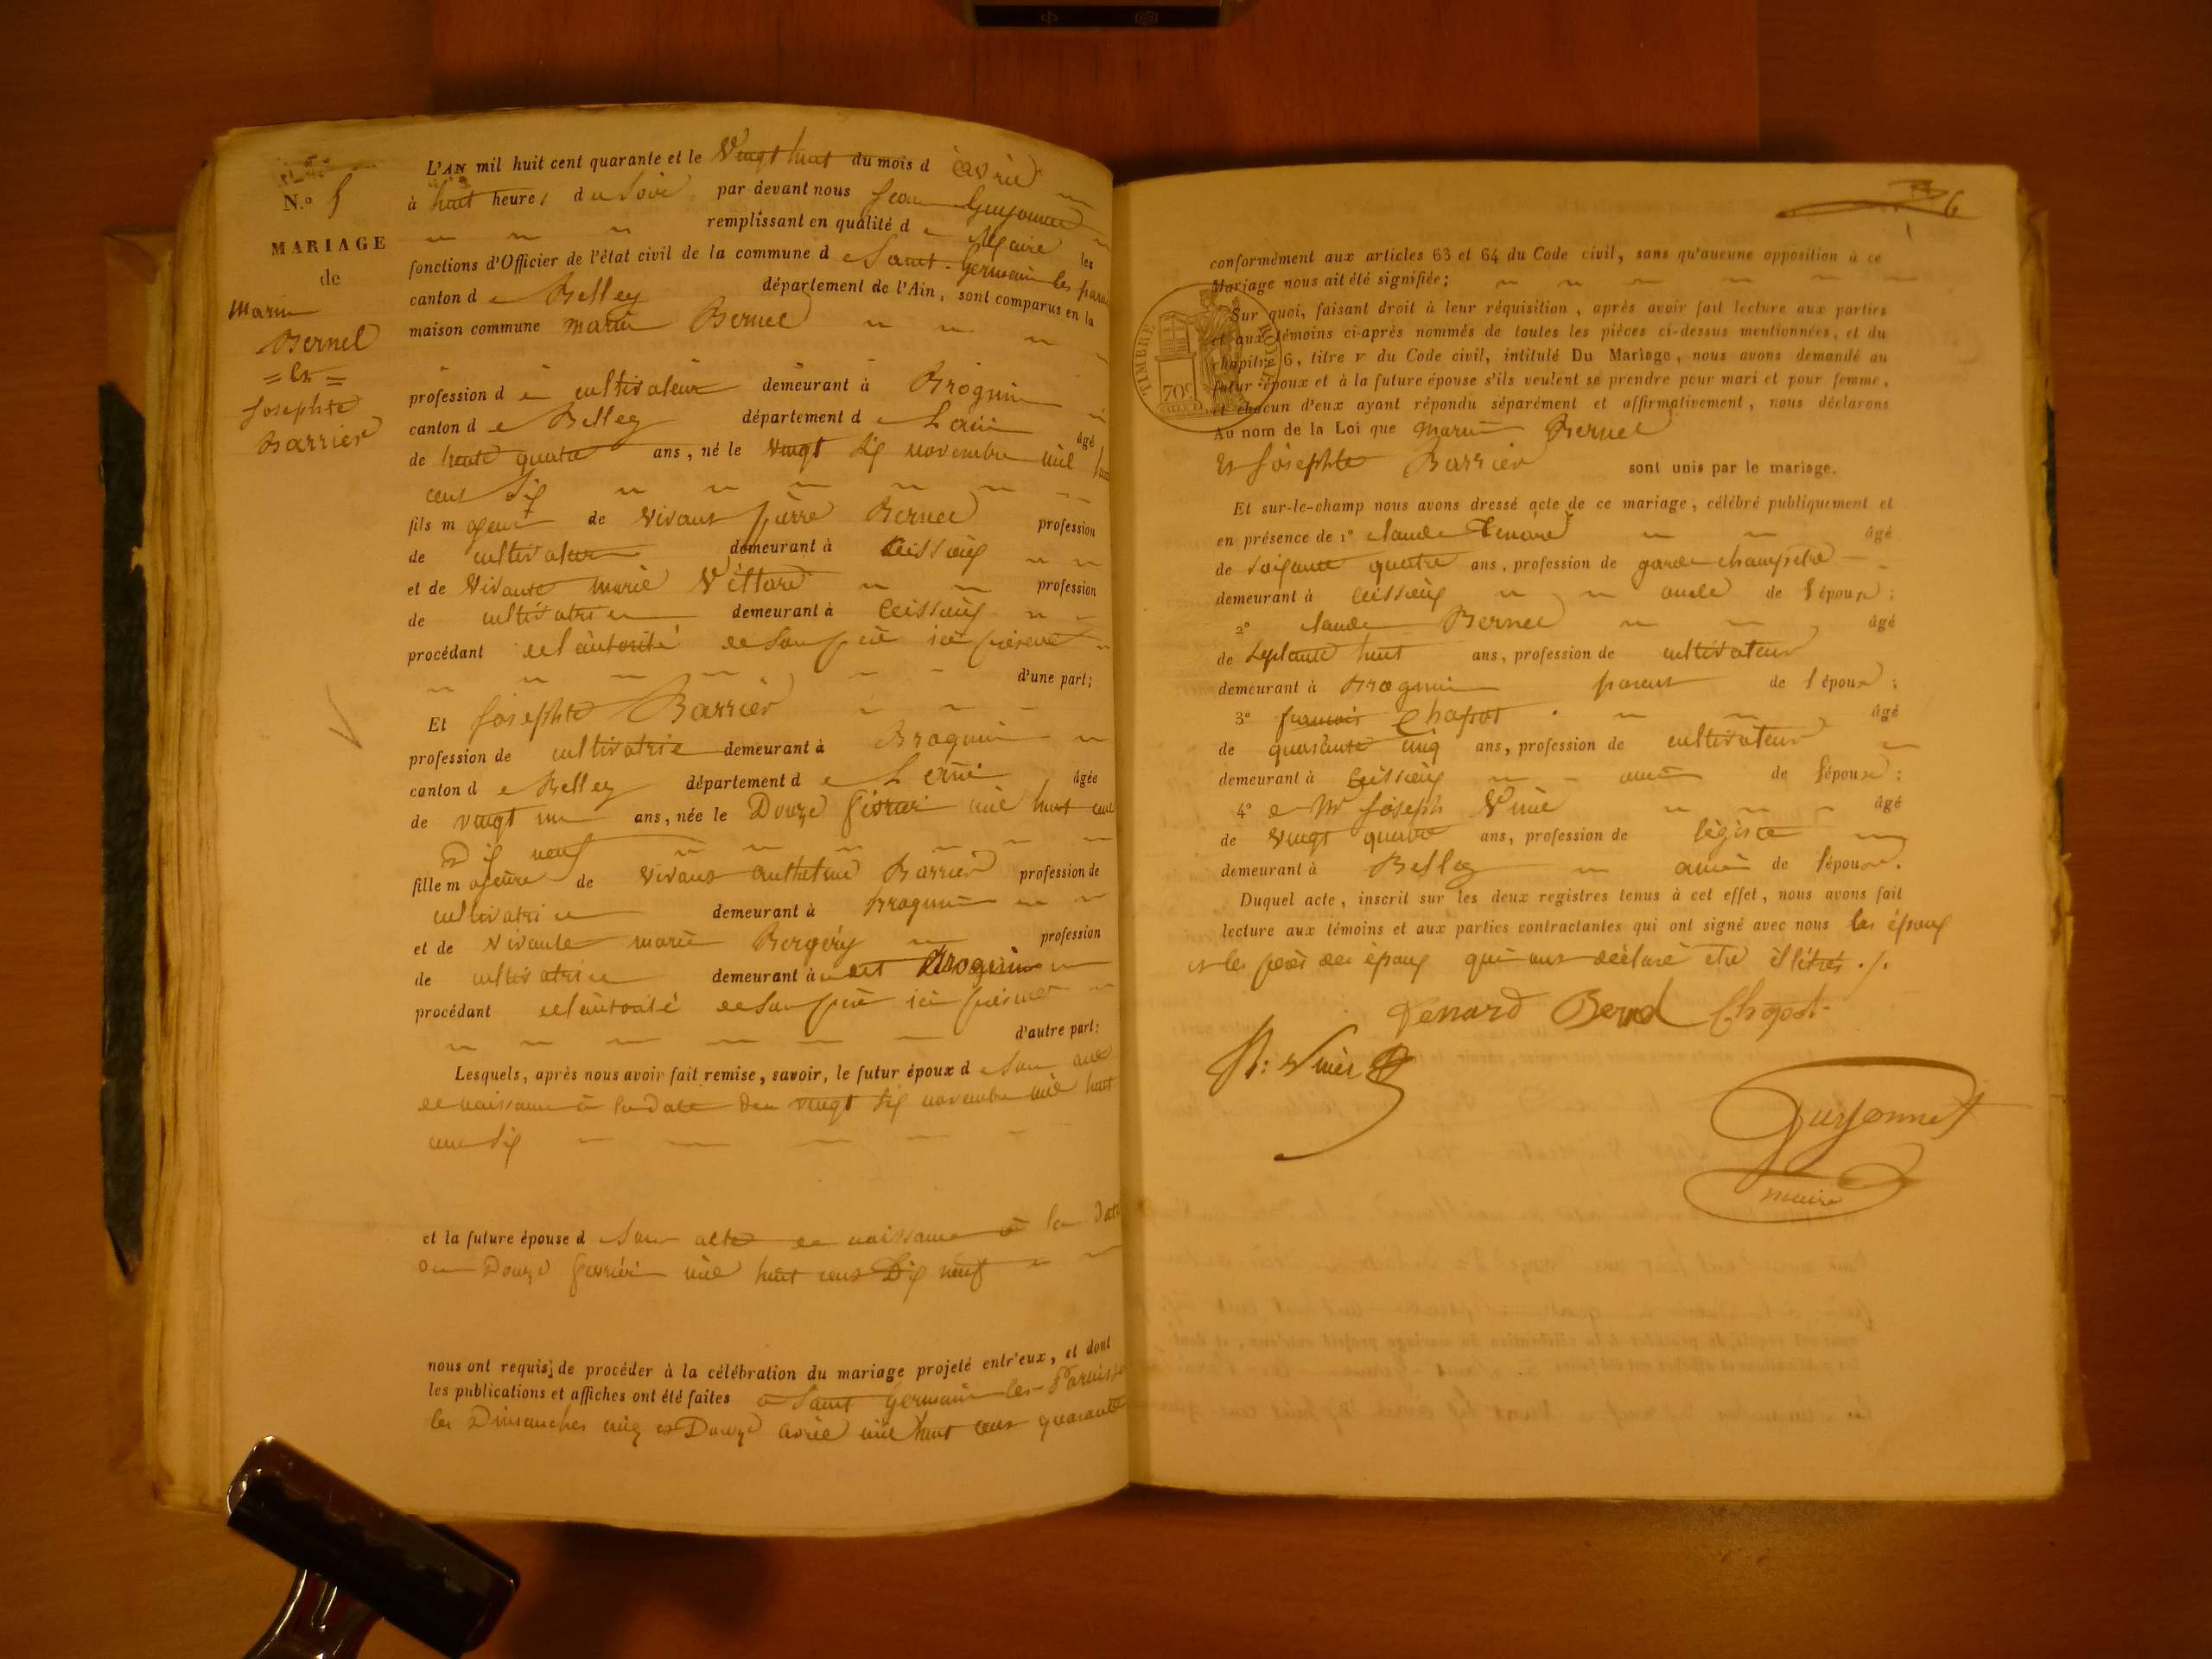 N.o 5
MARIAGE
de
Marin
Bernel
= Et =
Josephte
Barrier
L'AN mil huit cent quarante et le Vingt huit du mois d avril
à huit heures du Soir par devant nous Jean Guyonnet
remplissant en qualité de Maire les
fonctions d'Officier de l'état civil de la commune de Saint-Germain les paroi
canton de Belley département de l'Ain, sont comparus en la
maison commune marin Bernel
profession de cultivateur demeurant à Brognin
canton de Belley département de L'ain âgé
de trente quatre ans, né le vingt six novembre mil huit
cent Six
fils majeur de vivant pierre Bernel profession
de cultivateur demeurant à Ceissieux
et de Vivante marie Vettard profession
de cultivatrice demeurant à Ceissieux
procédant de l'autorité de Son père ici présent
d'une part;
Et Josephte Barrier
profession de cultivatrice demeurant à Brognin
canton de Belley département de L'ain, âgée
de vingt un ans, née le Douze fevrier mil huit cent
Dix neuf
fille majeure de vivant anthelme Barrier profession de
cultivatri demeurant à Brognin
et de vivante marie Bergéry profession
de cultivatrice demeurant à Brognin
procédant de l'autorité de Son père ici présent
d'autre part:
Lesquels, après nous avoir fait remise, savoir, le futur époux de Son acte
de naissance à la date du vingt six novembre mil huit
cent six
et la future épouse de Son acte de naissance à la date
du Douze fevrier mil huit cent Dix neuf
nous ont requis de procéder à la célébration du mariage projeté entr'eux, et dont
les publications et affiches ont été faites à Saint Germain les Paroiss
les Dimanches cinq et Douze avril mil huit cent quarante
6
conformément aux articles 63 et 64 du Code civil, sans qu'aucune opposition à ce
Mariage nous ait été signifiée;
TIMBRE ROYAL
70c
Sur quoi, faisant droit à leur réquisition, après avoir fait lecture aux parties
et aux témoins ci-après nommés de toutes les pièces ci-dessus mentionnées, et du
chapitre 6, titre v du Code civil, intitulé Du Mariage, nous avons demandé au
futur époux et à la future épouse s'ils veulent se prendre pour mari et pour femme,
et chacun d'eux ayant répondu séparément et affirmativement, nous déclarons
Au nom de la Loi que Marin Bernel
et Josephte Barrier sont unis par le mariage.
Et sur-le-champ nous avons dressé acte de ce mariage, célébré publiquement et
en présence de 1o claude Tenard âgé
de Soixante quatre ans, profession de garde champetre
demeurant à Ceissieux oncle de l'époux;
2o claude Bernel âgé
de Septante huit ans, profession de cultivateur
demeurant à Brognin parent de l'époux;
3o francois Chapot âgé
de quarante cinq ans, profession de cultivateur
demeurant à Ceissieux ami de l'époux;
4o et Mr joseph âgé
de vingt quatre ans, profession de légiste
demeurant à Belley ami de l'époux.
Duquel acte, inscrit sur les deux registres tenus à cet effet, nous avons fait
lecture aux témoins et aux parties contractantes qui ont signé avec nous les époux
et les pères des époux qui ont déclaré être illétrés ./.
Tenard Bernel Chapot
Guyonnet
maire